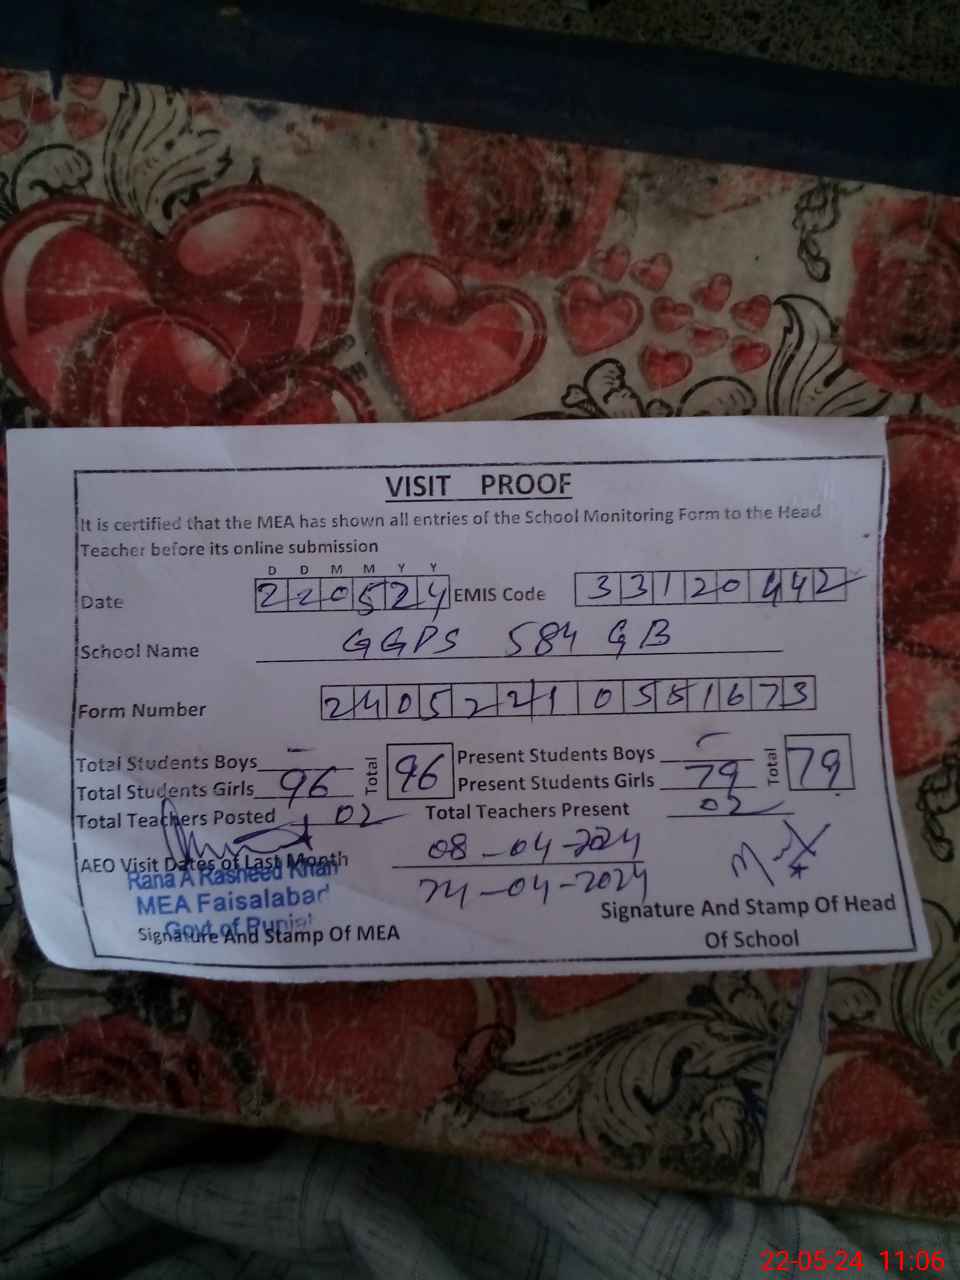 VISIT PROOF
It is certified that the MEA has shown all entries of the School Monitoring Form to the Head
Teacher before its online submission
D D M M Y Y
Date 220524 EMIS Code 33120442
School Name GGPS 584 GB
Form Number 240522105 1673
Total Students Boys - Total 96 Present Students Boys - Total 79
Total Students Girls 96 Present Students Girls 79
Total Teachers Posted 02 Total Teachers Present 02
AEO Visit Dates of Last Month 08-04-2024
24-04-2024
Rana A Rasheed Khan
MEA Faisalabad
Govt of Punjab
Signature And Stamp Of MEA
Signature And Stamp Of Head
Of School
22-05-24 11:06